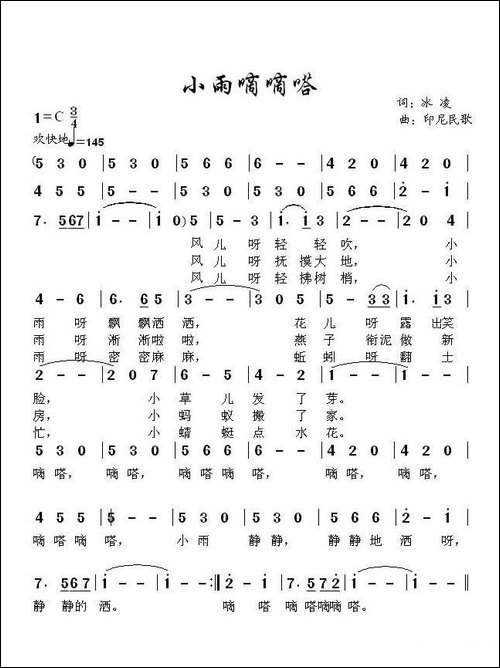 小雨嘀嘀嗒
1=C 3/4
词：冰凌
曲：印尼民歌
欢快地♩=145
(5 3 0 | 5 3 0 | 5 5 6 | 6 - - | 4 2 0 | 4 2 0 |
4 5 5 | 5 - - | 5 3 0 | 5 3 0 | 5 6 6 | 2̇ - i |
7· 5 6 7 | i - - | i 0) 5 | 5 - 3 | i· i 3 | 3 - - | 2 0 4 |
风儿呀轻轻吹，小
风儿呀抚摸大地，小
风儿呀轻拂树梢，小
4 - 6 | 6· 6 5 | 3 - - | 3 0 5 | 5 - 3 3 | i· i 3 |
雨呀飘飘洒洒，花儿呀露出笑
雨呀淅淅啦啦，燕子衔泥做新
雨呀密密麻麻，蚯蚓呀翻土
2 - - | 2 0 7 | 6 - 6 | 4 - 2 | 1 - - |
脸，小草儿发了芽。
房，小蚂蚁搬了家。
忙，小蜻蜓点水花。
5 3 0 | 5 3 0 | 5 5 6 | 6 - - | 4 2 0 | 4 2 0 |
嘀嗒，嘀嗒，嘀嗒嘀嗒，嘀嗒，嘀嗒，
4 5 5 | 5 - - | 5 3 0 | 5 3 0 | 5 6 6 | 2̇ - i |
嘀嗒嘀嗒，小雨静静，静静地洒呀，
7· 5 6 7 | i - - | i - - :| 2̇ - i | 7· 5 7 2̇ | i - - | i - - ||
静静的洒。嘀嗒嘀嗒嘀嘀嗒。